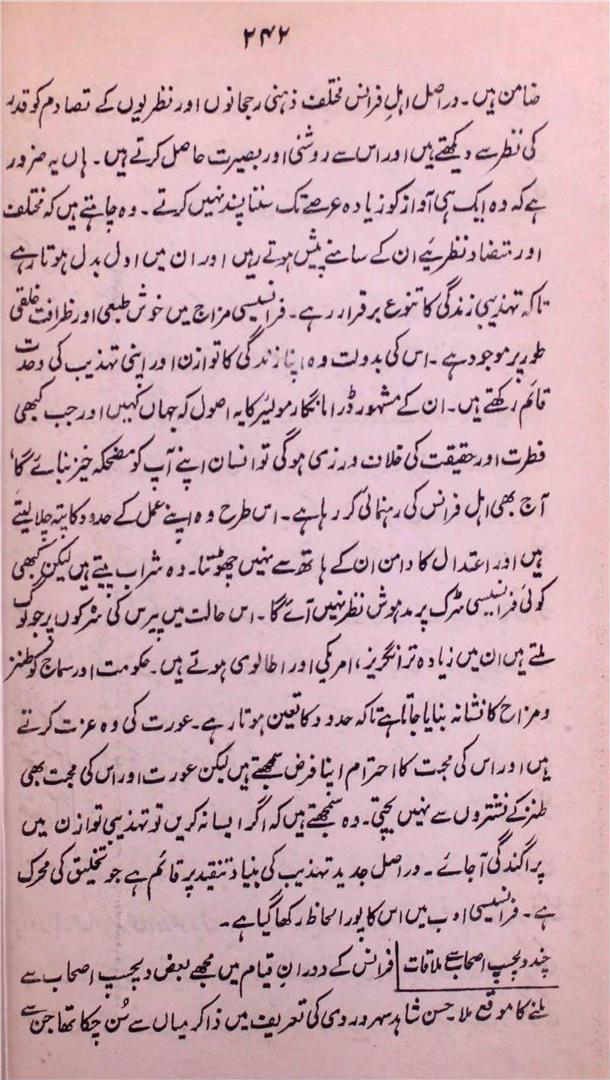 ۲۴۲
ضامن ہیں۔ دراصل اہلِ فرانس مختلف ذہنی رجحانوں اور نظریوں کے تصادم کو قدر
کی نظر سے دیکھتے ہیں اور اس سے روشنی اور بصیرت حاصل کرتے ہیں۔ ہاں یہ ضرور
ہے کہ وہ ایک ہی آواز کو زیادہ عرصے تک سننا پسند نہیں کرتے۔ وہ چاہتے ہیں کہ مختلف
اور متضاد نظریے ان کے سامنے پیش ہوتے رہیں اور ان میں ادل بدل ہوتا رہے
تاکہ تہذیبی زندگی کا تنوع برقرار رہے۔ فرانسیسی مزاج میں خوش طبعی اور ظرافت خلقی
طور پر موجود ہے۔ اس کی بدولت وہ اپنا زندگی کا توازن اور اپنی تہذیب کی وحدت
قائم رکھتے ہیں۔ ان کے مشہور ڈراما نگار مولیئر کا یہ اصول کہ جہاں کہیں اور جب کبھی
فطرت اور حقیقت کی خلاف ورزی ہوگی تو انسان اپنے آپ کو مضحکہ خیز بنائے گا،
آج بھی اہل فرانس کی رہنمائی کر رہا ہے۔ اس طرح وہ اپنے عمل کے حدود کا پتہ چلا لیتے
ہیں اور اعتدال کا دامن ان کے ہاتھ سے نہیں چھوٹتا۔ وہ شراب پیتے ہیں لیکن کبھی
کوئی فرانسیسی سڑک پر مدہوش نظر نہیں آئے گا۔ اس حالت میں پیرس کی سڑکوں پر جو لوگ
ملتے ہیں ان میں زیادہ تر انگریز، امریکی اور اطالوی ہوتے ہیں۔ حکومت اور سماج کو طنز
و مزاح کا نشانہ بنایا جاتا ہے تاکہ حدود کا تعین ہوتا رہے۔ عورت کی وہ عزت کرتے
ہیں اور اس کی محبت کا احترام اپنا فرض سمجھتے ہیں لیکن عورت اور اس کی محبت بھی
طنز کے نشتروں سے نہیں بچتی۔ وہ سمجھتے ہیں کہ اگر ایسا نہ کریں تو تہذیبی توازن میں
پراگندگی آجائے۔ دراصل جدید تہذیب کی بنیاد تنقید پر قائم ہے جو تخلیق کی محرک
ہے۔ فرانسیسی ادب میں اس کا پورا لحاظ رکھا گیا ہے۔
چند دلچسپ اصحاب سے ملاقات فرانس کے دورانِ قیام میں مجھے بعض دلچسپ اصحاب سے
ملنے کا موقع ملا۔ حسن شاہد سہروردی کی تعریف میں ذاکر میاں سے سُن چکا تھا جن سے